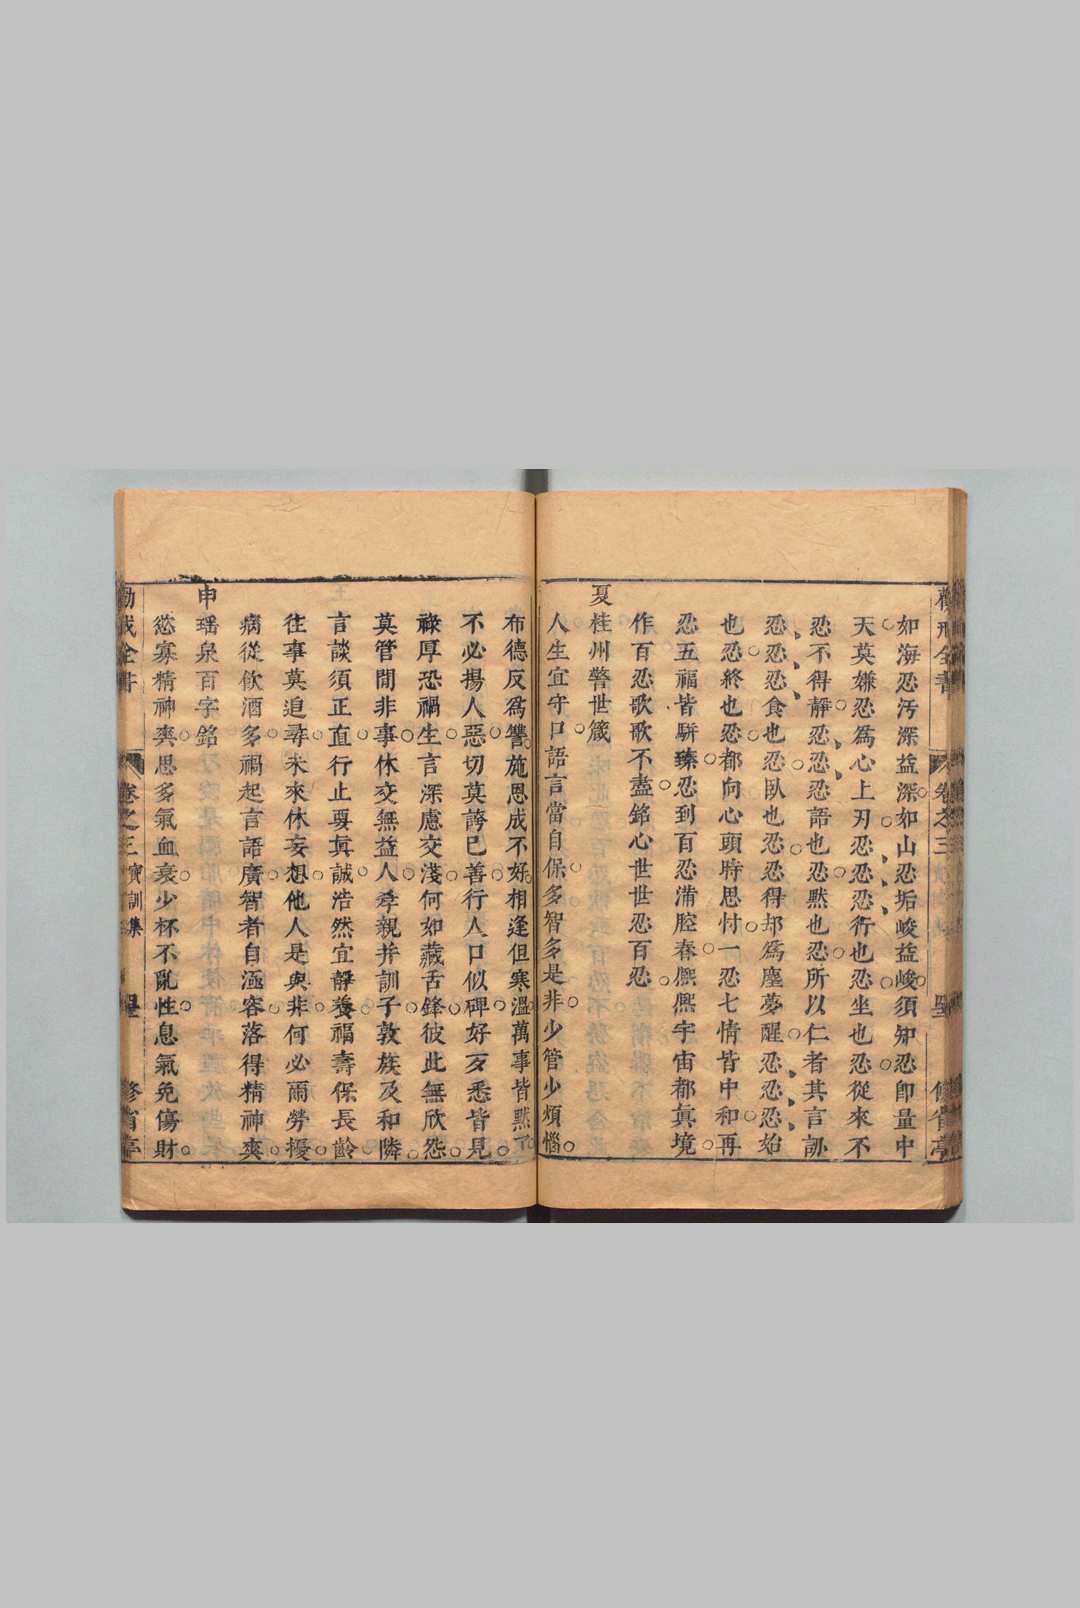 如海忍污深益深如山忍垢峻益峻須知忍卽量中
天莫嫌忍爲心上刃忍忍忍行也忍坐也忍從來不
忍不得靜忍忍忍語也忍默也忍所以仁者其言訒
忍忍忍食也忍臥也忍忍得却爲塵夢醒忍忍忍始
也忍終也忍都向心頭時思忖一忍七情皆中和再
忍五福皆駢臻忍到百忍滿腔春熈熈宇宙都眞境
作百忍歌歌不盡銘心世世忍百忍
夏桂州警世箴
人生宜守口語言當自保多智多是非少管少煩惱
布德反爲讐施恩成不好相逢但寒溫萬事皆默了
不必揚人惡切莫誇己善行人口似碑好歹悉皆見
祿厚恐禍生言深慮交淺何如藏舌鋒彼此無欣怨
莫管閒非事休交無益人孝親并訓子敦族及和隣
言談須正直行止要眞誠浩然宜靜養福壽保長齡
往事莫追尋未來休妄想他人是與非何必爾勞擾
病從飮酒多禍起言語廣智者自涵容落得精神爽
申瑤泉百字銘
慾寡精神爽思多氣血衰少杯不亂性息氣免傷財
勸戒全書
卷之三 寶訓集
修省亭